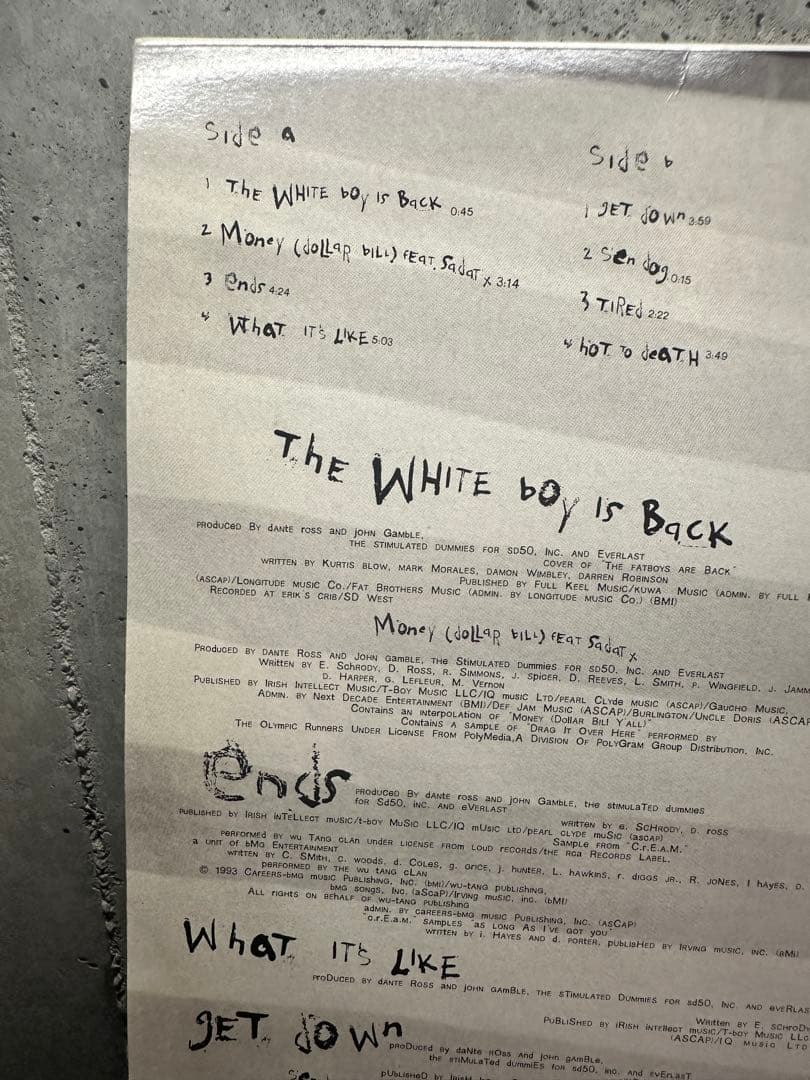 Side a
1 The WHITE boy is Back 0:45
2 Money (dollar bill) feat. Sadat x 3:14
3 ends 4:24
4 What it's like 5:03
Side b
1 get down 3:59
2 sen dog 0:15
3 Tired 2:22
4 hot to death 3:49
The WHITE boy is Back
PRODUCED BY dANTE ROSS AND JOHN GAMBLE,
THE STIMULATED DUMMIES FOR SD50, INC. AND EVERLAST
COVER OF "THE FATBOYS ARE BACK"
WRITTEN BY KURTIS BLOW, MARK MORALES, DAMON WIMBLEY, DARREN ROBINSON
PUBLISHED BY FULL KEEL MUSIC/KUWA MUSIC (ADMIN. BY FULL
(ASCAP)/LONGITUDE MUSIC CO./FAT BROTHERS MUSIC (ADMIN. BY LONGITUDE MUSIC CO.) (BMI)
RECORDED AT ERIK'S CRIB/SD WEST
Money (dollar bill) feat Sadat x
PRODUCED BY DANTE ROSS AND JOHN GAMBLE, THE STIMULATED DUMMIES FOR SD50, INC. AND EVERLAST
WRITTEN BY E. SCHRODY, D. ROSS, R. SIMMONS, J. SPICER, D. REEVES, L. SMITH, P. WINGFIELD, J. JAMM
D. HARPER, G. LEFLEUR, M. VERNON
PUBLISHED BY IRISH INTELLECT MUSIC/T-BOY MUSIC LLC/IQ MUSIC LTD/PEARL CLYDE MUSIC (ASCAP)/GAUCHO MUSIC,
ADMIN. BY NEXT DECADE ENTERTAINMENT (BMI)/DEF JAM MUSIC (ASCAP)/BURLINGTON/UNCLE DORIS (ASCAP
CONTAINS AN INTERPOLATION OF "MONEY (DOLLAR BILL Y'ALL)"
CONTAINS A SAMPLE OF "DRAG IT OVER HERE" PERFORMED BY
THE OLYMPIC RUNNERS UNDER LICENSE FROM POLYMEDIA, A DIVISION OF POLYGRAM GROUP DISTRIBUTION, INC.
ends
PRODUCED BY dANTE ROSS AND JOHN GAMBLE, THE STIMULATED DUMMIES
FOR Sd50, INC. AND EVERLAST
WRITTEN BY e. SCHRODY, D. ROSS
PUBLISHED BY IRISH INTELLECT MUSIC/T-BOY MUSIC LLC/IQ MUSIC LTD/PEARL CLYDE MUSIC (ASCAP)
SAMPLE FROM "C.r.E.A.M."
PERFORMED BY WU TANG CLAN UNDER LICENSE FROM LOUD RECORDS/THE RCA RECORDS LABEL,
A UNIT OF bMG ENTERTAINMENT
WRITTEN BY C. SMITH, C. WOODS, d. COLES, g. GRICE, j. HUNTER, L. HAWKINS, r. DIGGS JR., R. JONES, I HAYES, D.
PERFORMED BY THE WU TANG CLAN
© 1993 CAREERS-BMG MUSIC PUBLISHING, INC. (BMI)/WU-TANG PUBLISHING,
BMG SONGS, INC. (ASCAP)/IRVING MUSIC, INC. (BMI)
ALL RIGHTS ON BEHALF OF WU-TANG PUBLISHING
ADMIN. BY CAREERS-BMG MUSIC PUBLISHING, INC. (ASCAP)
"C.r.E.a.M." SAMPLES "AS LONG AS I'VE GOT YOU"
WRITTEN BY I. HAYES AND D. PORTER, PUBLISHED BY IRVING MUSIC, INC. (BMI)
What it's like
PRODUCED BY dANTE ROSS AND JOHN GAMBLE, THE STIMULATED DUMMIES FOR sd50, INC. AND EVERLAS
WRITTEN BY E. SCHROD
PUBLISHED BY IRISH INTELLECT MUSIC/T-BOY MUSIC LLC
(ASCAP)/IQ MUSIC LTD
get down
PRODUCED BY daNTE ROSS AND JOHN GAMBLE,
THE STIMULATED DUMMIES FOR sd50, INC. AND EVERLAST